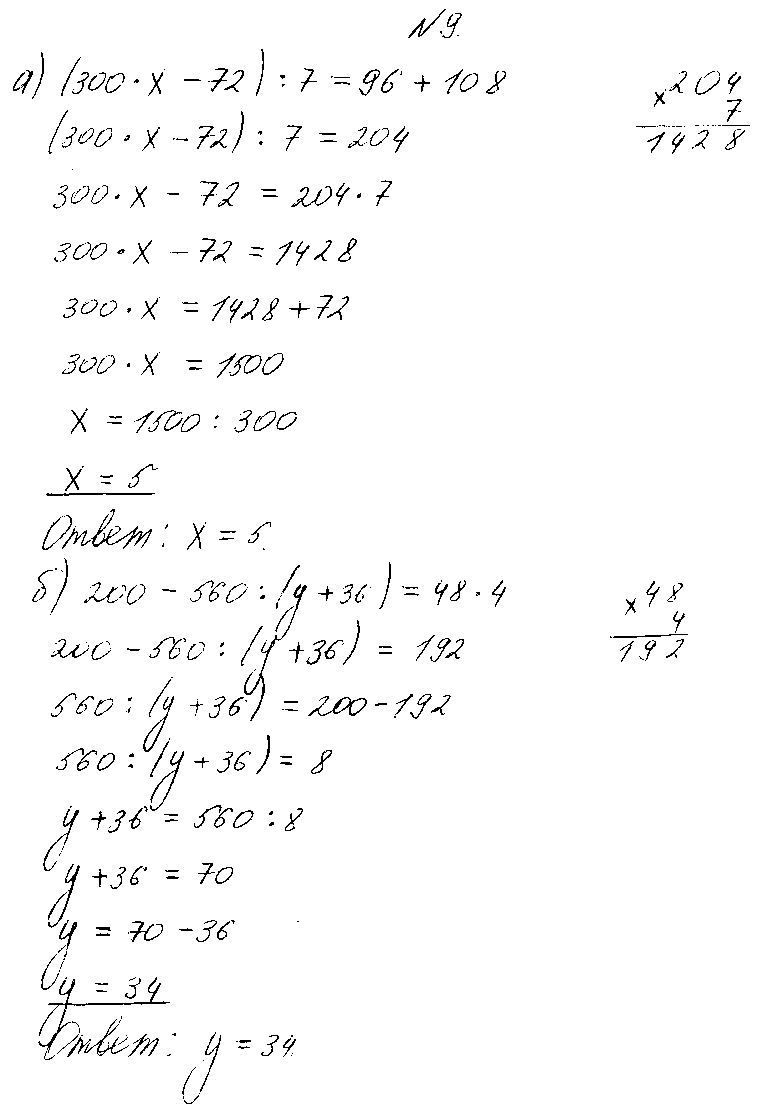 N 9.
а) (300 · x − 72) : 7 = 96 + 108
(300 · x − 72) : 7 = 204
300 · x − 72 = 204 · 7
300 · x − 72 = 1428
300 · x = 1428 + 72
300 · x = 1500
x = 1500 : 300
x = 5
Ответ: x = 5.
x 204
7
1428
б) 200 − 560 : (y + 36) = 48 · 4
200 − 560 : (y + 36) = 192
560 : (y + 36) = 200 − 192
560 : (y + 36) = 8
y + 36 = 560 : 8
y + 36 = 70
y = 70 − 36
y = 34
Ответ: y = 34.
x 48
4
192